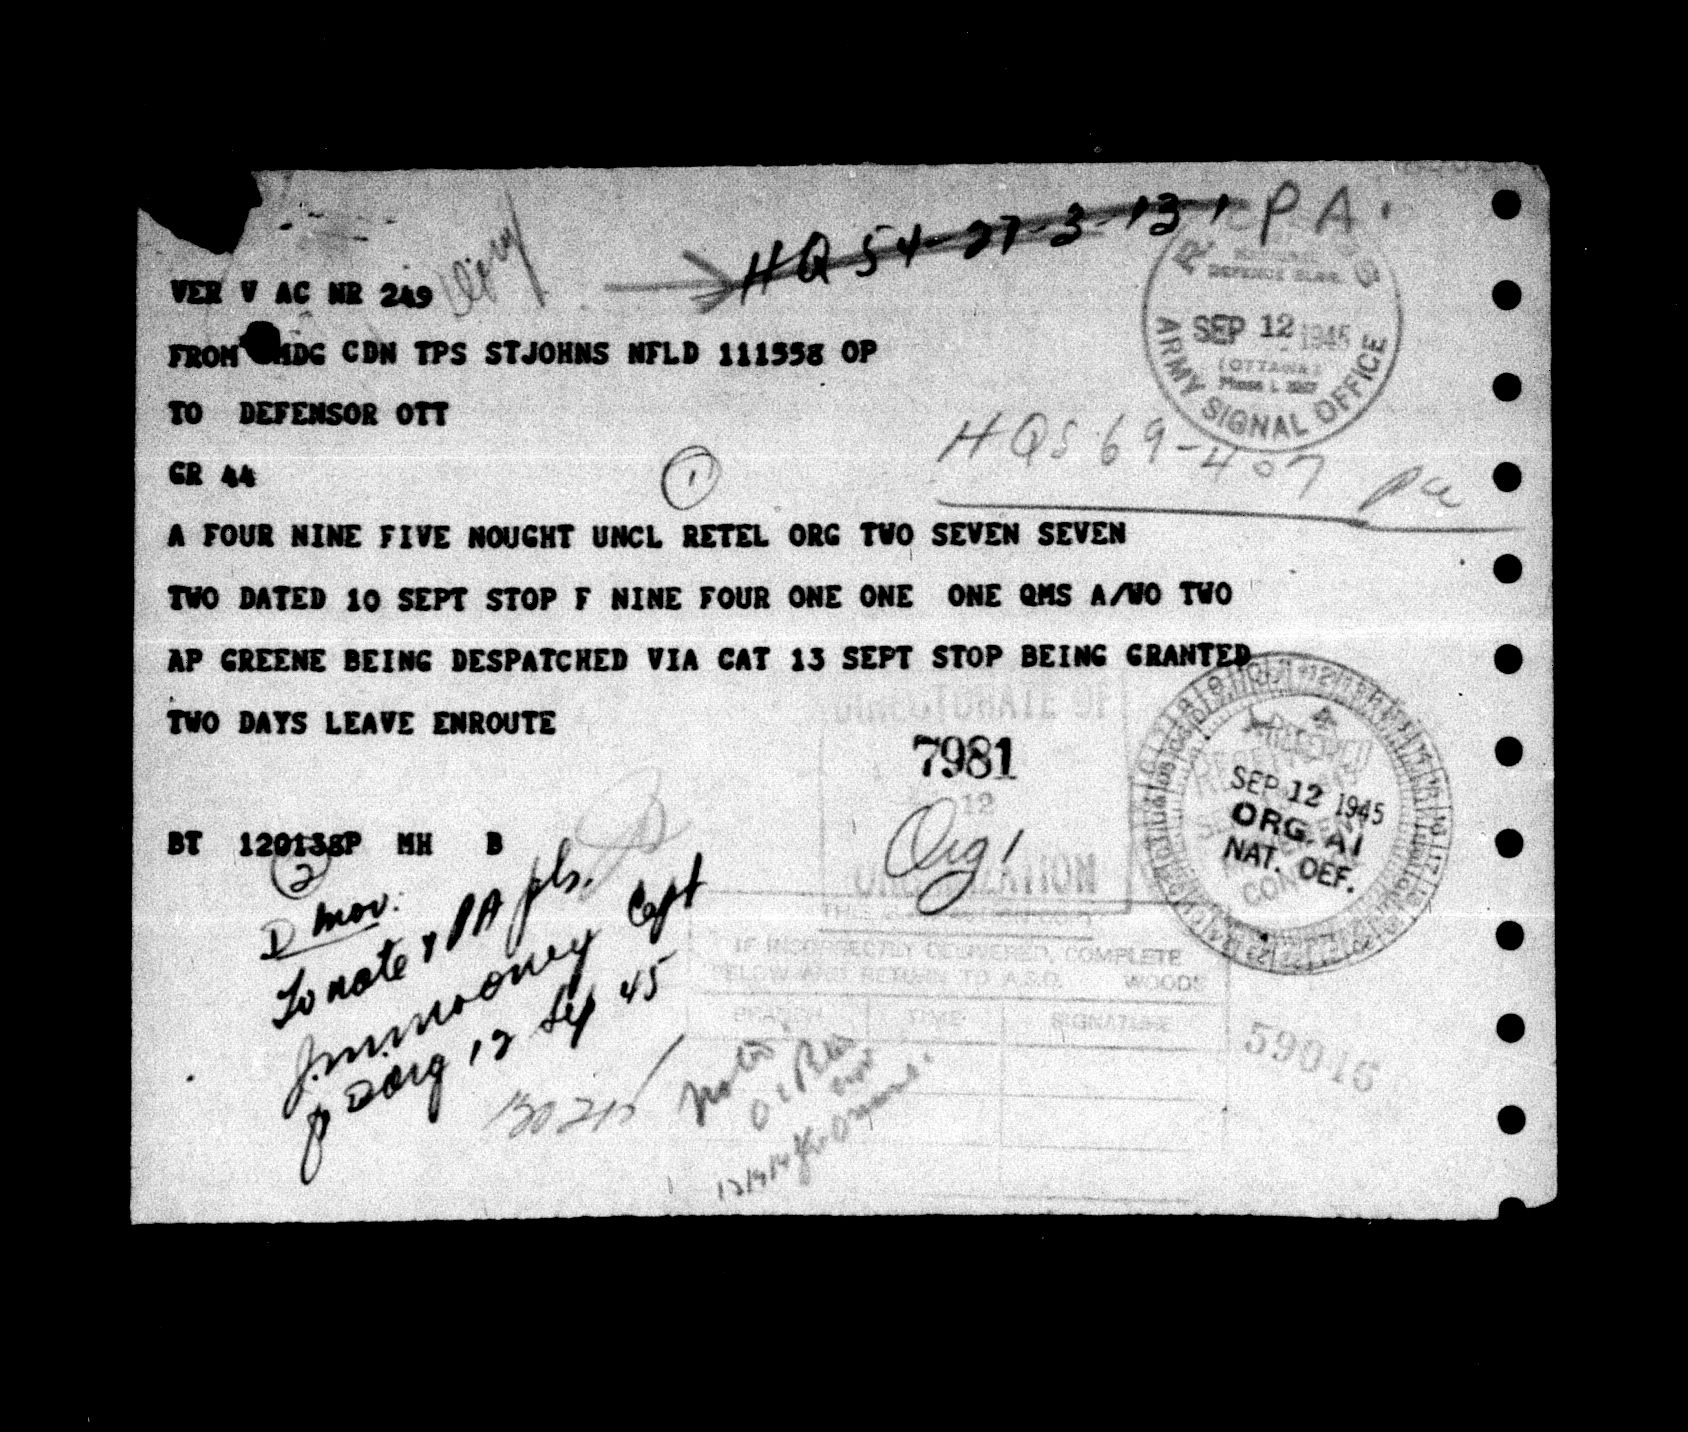 HQ 54-27-3-13, PA.
VER V AC NR 249
NATIONAL
DEFENCE BLDG.
SEP 12 1945
(OTTAWA)
ARMY SIGNAL OFFICE
FROM CDN TPS STJOHNS NFLD 111558 OP
TO DEFENSOR OTT
HQS 69-407 pa
GR 44
1
A FOUR NINE FIVE NOUGHT UNCL RETEL ORG TWO SEVEN SEVEN
TWO DATED 10 SEPT STOP F NINE FOUR ONE ONE ONE QMS A/WO TWO
AP GREENE BEING DESPATCHED VIA CAT 13 SEPT STOP BEING GRANTED
TWO DAYS LEAVE ENROUTE
DIRECTORATE OF
7981
12
Org 1
ORGANIZATION
SEP 12 1945
ORG. A1
NAT. DEF.
BT 120138P MH B
2
D Mov:
To note & PA pls.
J.M. Mooney Capt
D Org 12 Sep 45
IF INCORRECTLY DELIVERED, COMPLETE
BELOW AND RETURN TO A.S.O. WOODS
BRANCH TIME SIGNATURE
59016
Noted